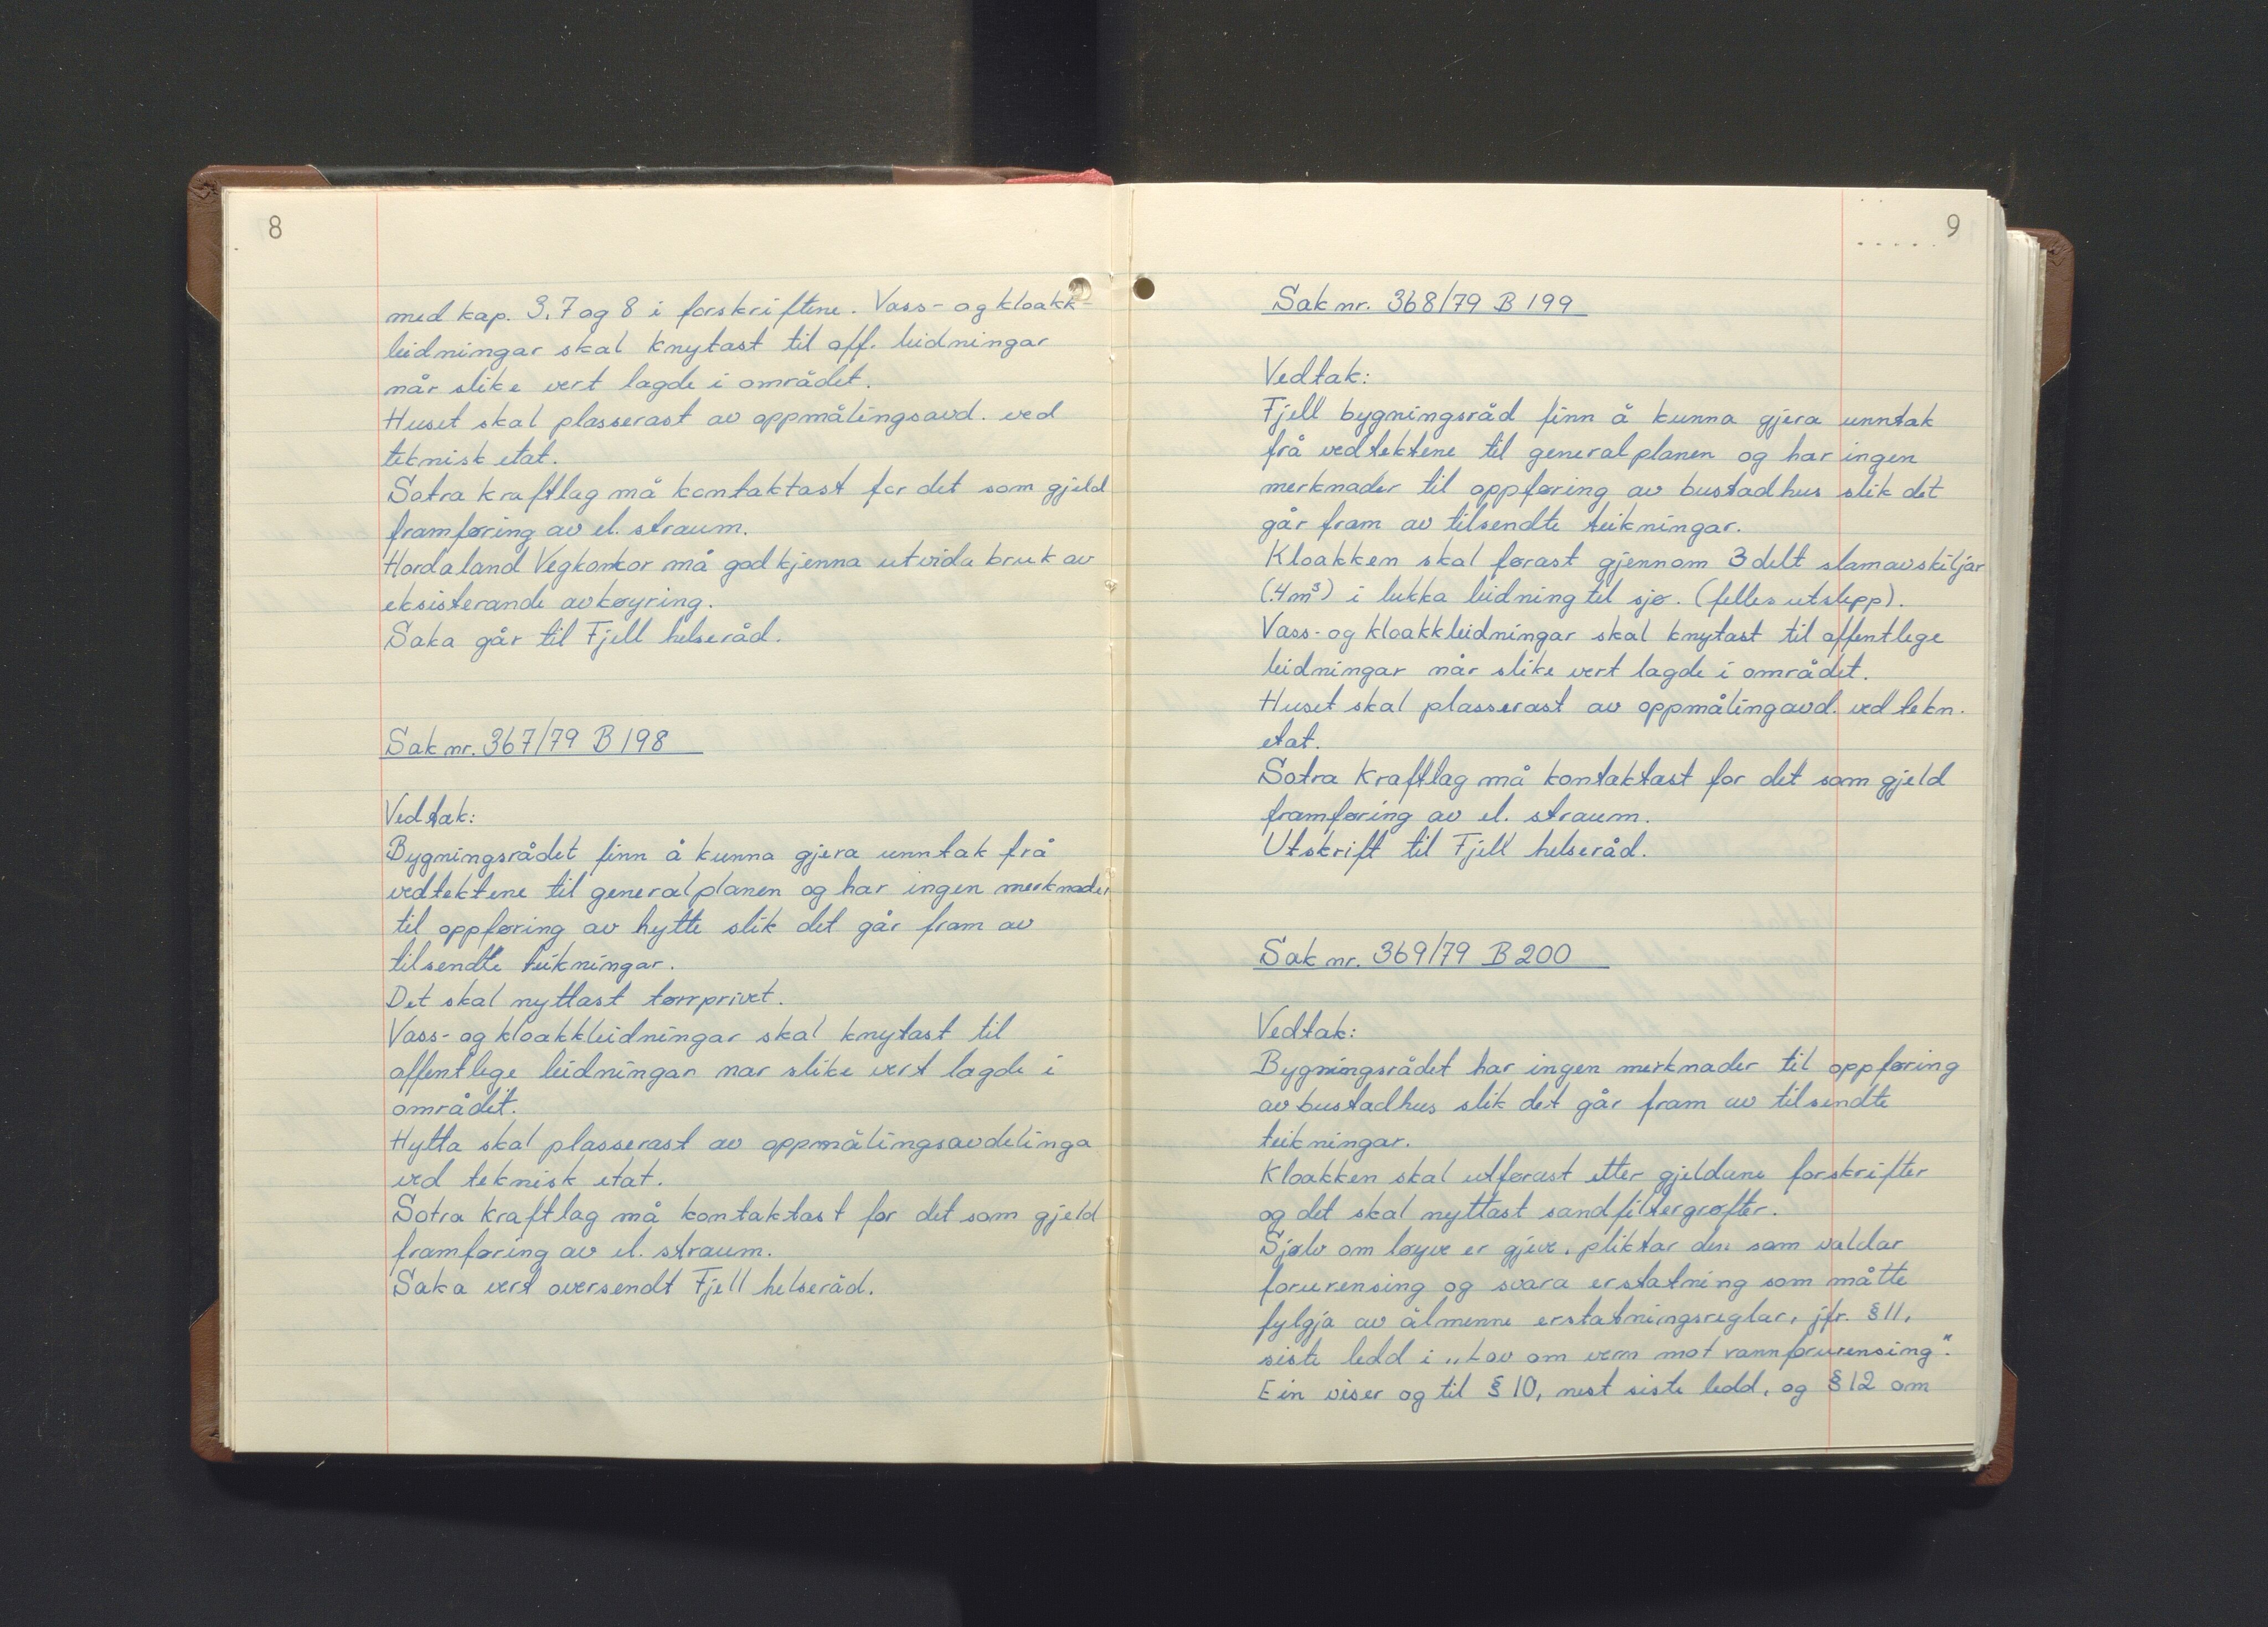 8
med kap. 3, 7 og 8 i forskriftene. Vass- og kloakk-
leidningar skal knytast til off. leidningar
når slike vert lagde i området.
Huset skal plasserast av oppmålingsavd. ved
teknisk etat.
Sotra kraftlag må kontaktast for det som gjeld
framføring av el. straum.
Hordaland Vegkontor må godkjenna utvida bruk av
eksisterande avkøyring.
Saka går til Fjell helseråd.
Sak nr. 367/79 B 198
Vedtak:
Bygningsrådet finn å kunna gjera unntak frå
vedtektene til generalplanen og har ingen merknader
til oppføring av hytte slik det går fram av
tilsendte teikningar.
Det skal nyttast tørrprivet.
Vass- og kloakkleidningar skal knytast til
offentlege leidningar nar slike vert lagde i
området.
Hytta skal plasserast av oppmålingsavdelinga
ved teknisk etat.
Sotra kraftlag må kontaktast for det som gjeld
framføring av el. straum.
Saka vert oversendt Fjell helseråd.
9
Sak nr. 368/79 B 199
Vedtak:
Fjell bygningsråd finn å kunna gjera unntak
frå vedtektene til generalplanen og har ingen
merknader til oppføring av bustadhus slik det
går fram av tilsendte teikningar.
Kloakken skal førast gjennom 3 delt slamavskiljar
(4m³) i lukka leidning til sjø. (felles utslepp).
Vass- og kloakkleidningar skal knytast til offentlege
leidningar når slike vert lagde i området.
Huset skal plasserast av oppmålingavd. ved tekn.
etat.
Sotra Kraftlag må kontaktast for det som gjeld
framføring av el. straum.
Utskrift til Fjell helseråd.
Sak nr. 369/79 B 200
Vedtak:
Bygningsrådet har ingen merknader til oppføring
av bustadhus slik det går fram av tilsendte
teikningar.
Kloakken skal utførast etter gjeldane forskrifter
og det skal nyttast sandfiltergrøfter.
Sjølv om løyve er gjeve, pliktar den som valdar
forureinsing og svara erstatning som måtte
fylgja av ålmenne erstatningsreglar, jfr. § 11,
siste ledd i „Lov om vern mot vannforurensing".
Ein viser og til § 10, nest siste ledd, og § 12 om